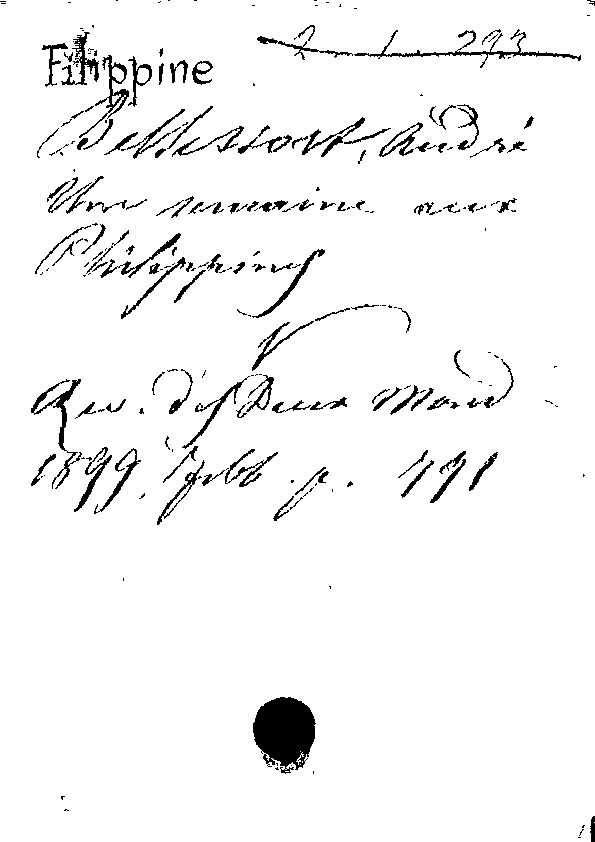 Filippine 2. 1. 293
Bellessort, André
Une semaine aux
Philippines
Rev. des Deux Mond
1899, febb. p. 791